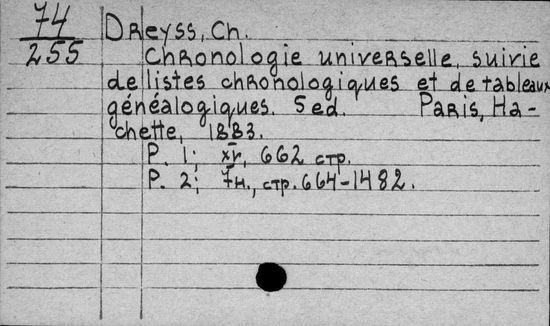 74
255
Dreyss, Ch.
Chronologie universelle, suivie
de listes chronologiques et de tableaux
généalogiques. 5 ed. Paris, Ha-
chette, 1883.
P. 1; xv, 662 стр.
P. 2; 7н., стр. 664-1482.